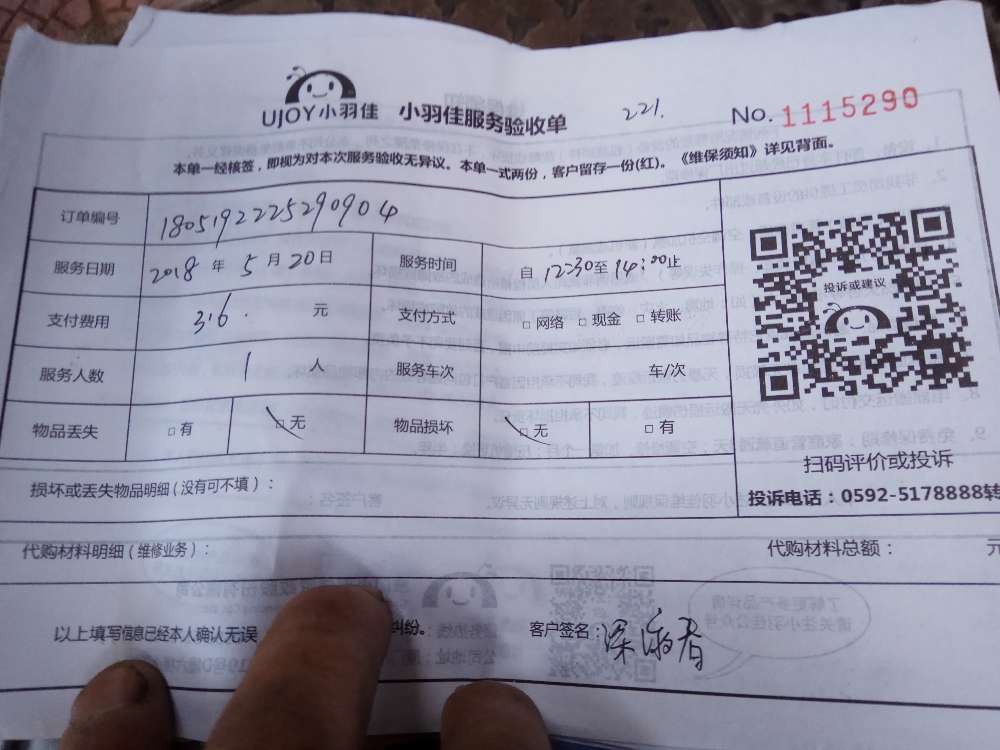 UJOY小羽佳 小羽佳服务验收单 221. No. 1115290
本单一经核签，即视为对本次服务验收无异议。本单一式两份，客户留存一份(红)。《维保须知》详见背面。
订单编号 1805192225290904
服务日期 2018 年 5 月 20 日 服务时间 自 12:30 至 14:00 止
支付费用 316. 元 支付方式 □ 网络 □ 现金 □ 转账
服务人数 1 人 服务车次 车/次
物品丢失 □ 有 □ 无 物品损坏 □ 无 □ 有
投诉或建议
扫码评价或投诉
投诉电话：0592-5178888转
损坏或丢失物品明细（没有可不填）：
代购材料明细（维修业务）： 代购材料总额： 元
以上填写信息已经本人确认无误 纠纷。 客户签名：